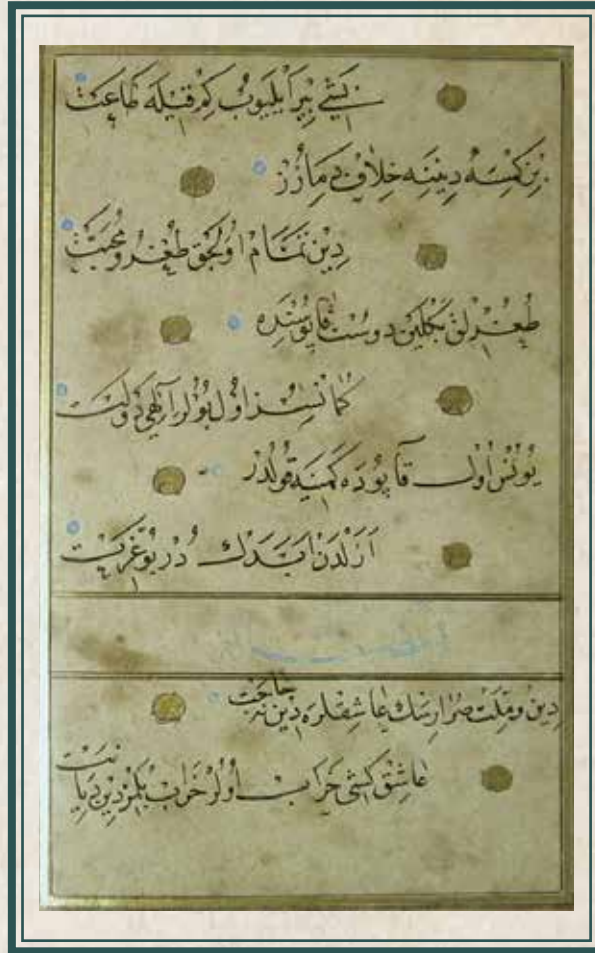 نیشے بیر ایلیوب کم قیله طاعت
بز کمسه دیننه خلاف دیمازز
دین تمام اولجق طغرو محبت
طغرلق بکلین دوست قاپوسنده
کمانسز اول بولر الهی دولت
یونس اول قاپوده کمینه قولدر
ازلدن ابددك در بو عزت
دین و ملت صرارسك عاشقلره دین نه حاجت
عاشق کشی خراب اولر خراب بلمز دین دیانت